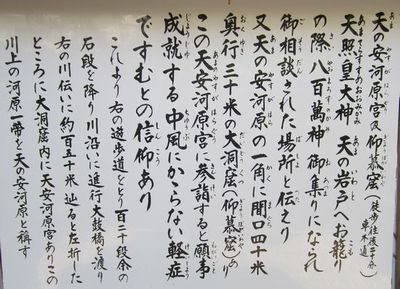 天の安河原宮及仰慕窟(徒歩往復三十分 車不通)
天照皇大神 天の岩戸へお籠り
の際 八百萬神 御集りになられ
御相談された場所と伝えり
又天の安河原の一角に間口四十米
奥行三十米の大洞窟(仰慕窟)あり
この天安河原宮に参詣すると願事
成就する中風にかゝらない軽症
ですむとの信仰あり
これより右の遊歩道をとり百二十段余の
石段を降り川沿いに進行太鼓橋を渡り
右の川伝いに約百五十米辿ると左折した
ところに大洞窟内に天安河原宮ありこの
川上の河原一帯を天の安河原と称す